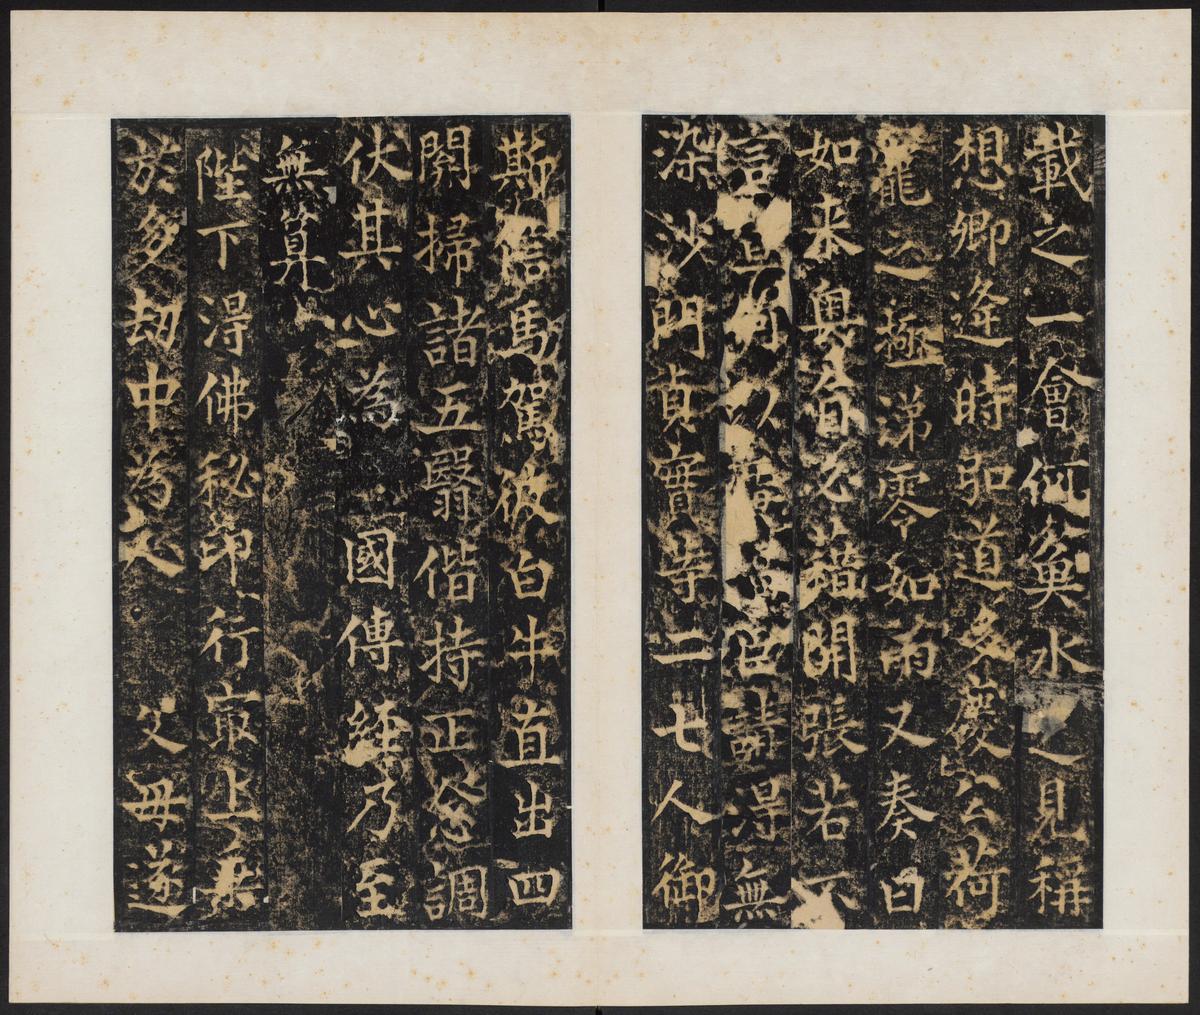 載之一會何異水之見稱
想卿逄時聖道多慶公荷
寵之極涕零如雨又奏曰
如来奧旨必藉開張若不
宣
染沙門貞實等二七人御
斯信馬駕彼白牛直出四
關掃諸五翳偕持正念調
伏其心為國傳經乃至
無筭
陛下淂佛秘印行最上乘
於多劫中為大父母遂